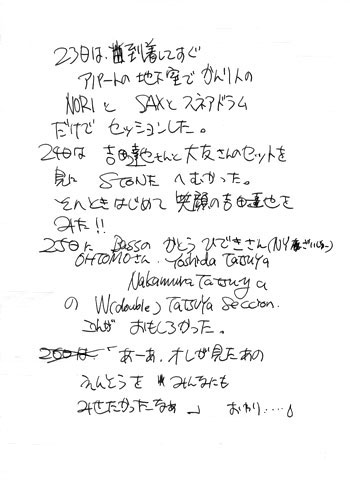 23日は、到着してすぐ
アパートの地下室で かんりんの
NORIと SAXと スネアドラム
だけで セッションした。
24日は 吉田達也さんと大友さんのセットを
見に STONE へむかった。
そのときはじめて 笑顔の吉田達也を
みた!!
25日に Bassの かとうひできさん(NY
OHTOMOさん、Yoshida Tatsuya
Nakamura Tatsuya
の W(double) Tatsuya Session.
これが おもしろかった。
26日は「あーあ、オレが見たあの
えんとうを みんなにも
みせたかったなぁ」 おわり・・・・